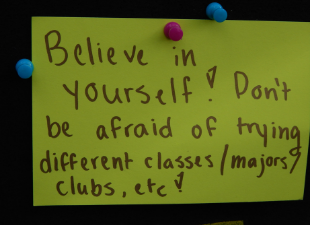 Believe in
yourself! Don't
be afraid of trying
different classes/majors/
clubs, etc!